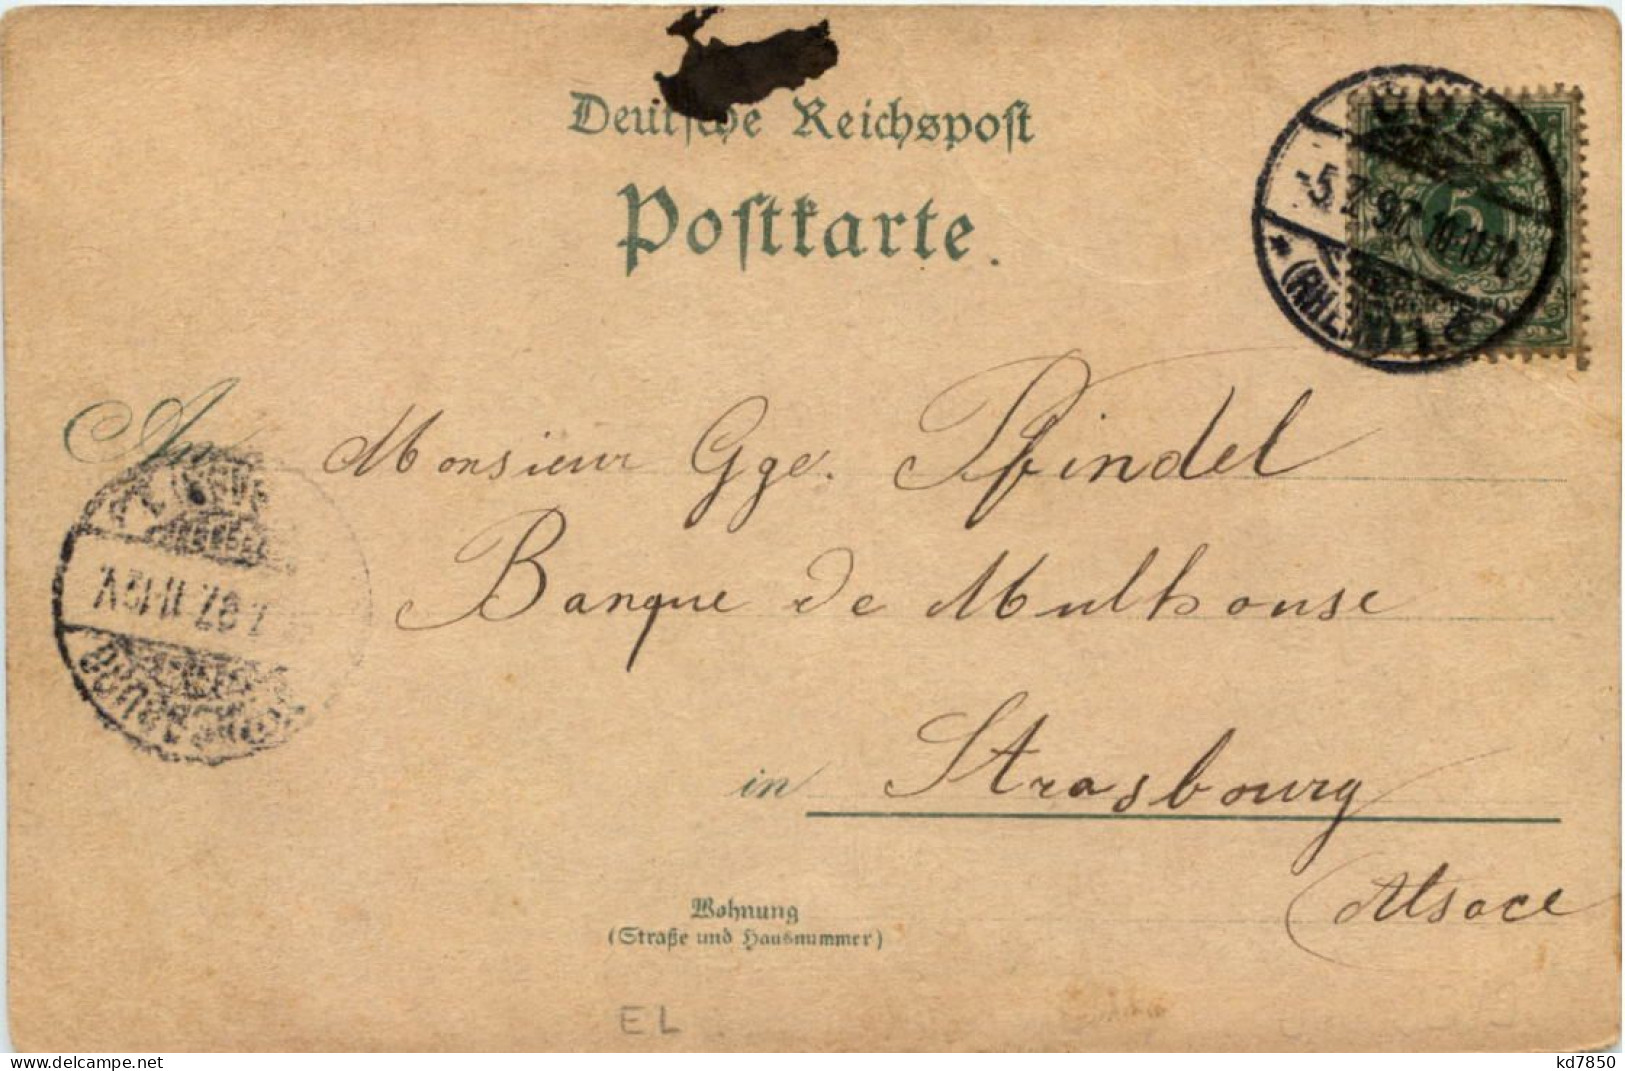 Deutsche Reichspost
Postkarte.
-5.7.97. 10-11
5
REICHSPOST
An
Monsieur Gge. Pfindel
Banque de Mulhouse
in Strasbourg
Alsace
7.97. 11-12V.
Wohnung
(Straße und Hausnummer)
EL
kd7850